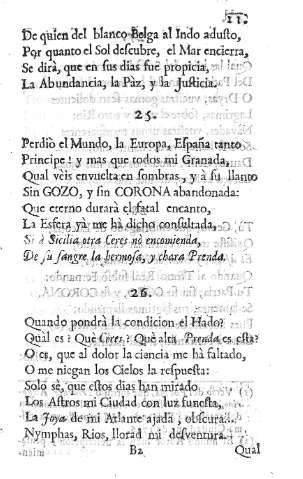 11.
De quien del blanco Belga al Indo adusto,
Por quanto el Sol descubre, el Mar encierra,
Se dirà, que en sus dias fue propicia,
La Abundancia, la Paz, y la Justicia.
25.
Perdiò el Mundo, la Europa, España tanto
Principe! y mas que todos mi Granada,
Qual vèis envuelta en sombras, y à su llanto
Sin GOZO, y sin CORONA abandonada:
Que eterno durarà el fatal encanto,
La Esfera yà me hà dicho consultada,
Si à Sicilia otra Ceres nò encomienda,
De su sangre la hermosa, y chara Prenda.
26.
Quando pondrà la condicion el Hado?
Quàl es? Què Ceres? Què alta Prenda es esta?
O es, que al dolor la ciencia me hà faltado,
O me niegan los Cielos la respuesta:
Solo sè, que estos dias han mirado
Los Astros mi Ciudad con luz funesta,
La Joya de mi Atlante ajada, obscura..
Nymphas, Rios, llorad mi desventura.
B2 Qual